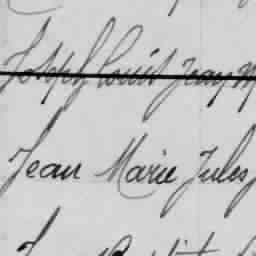 Joseph Louis Jean M
Jean Marie Jules